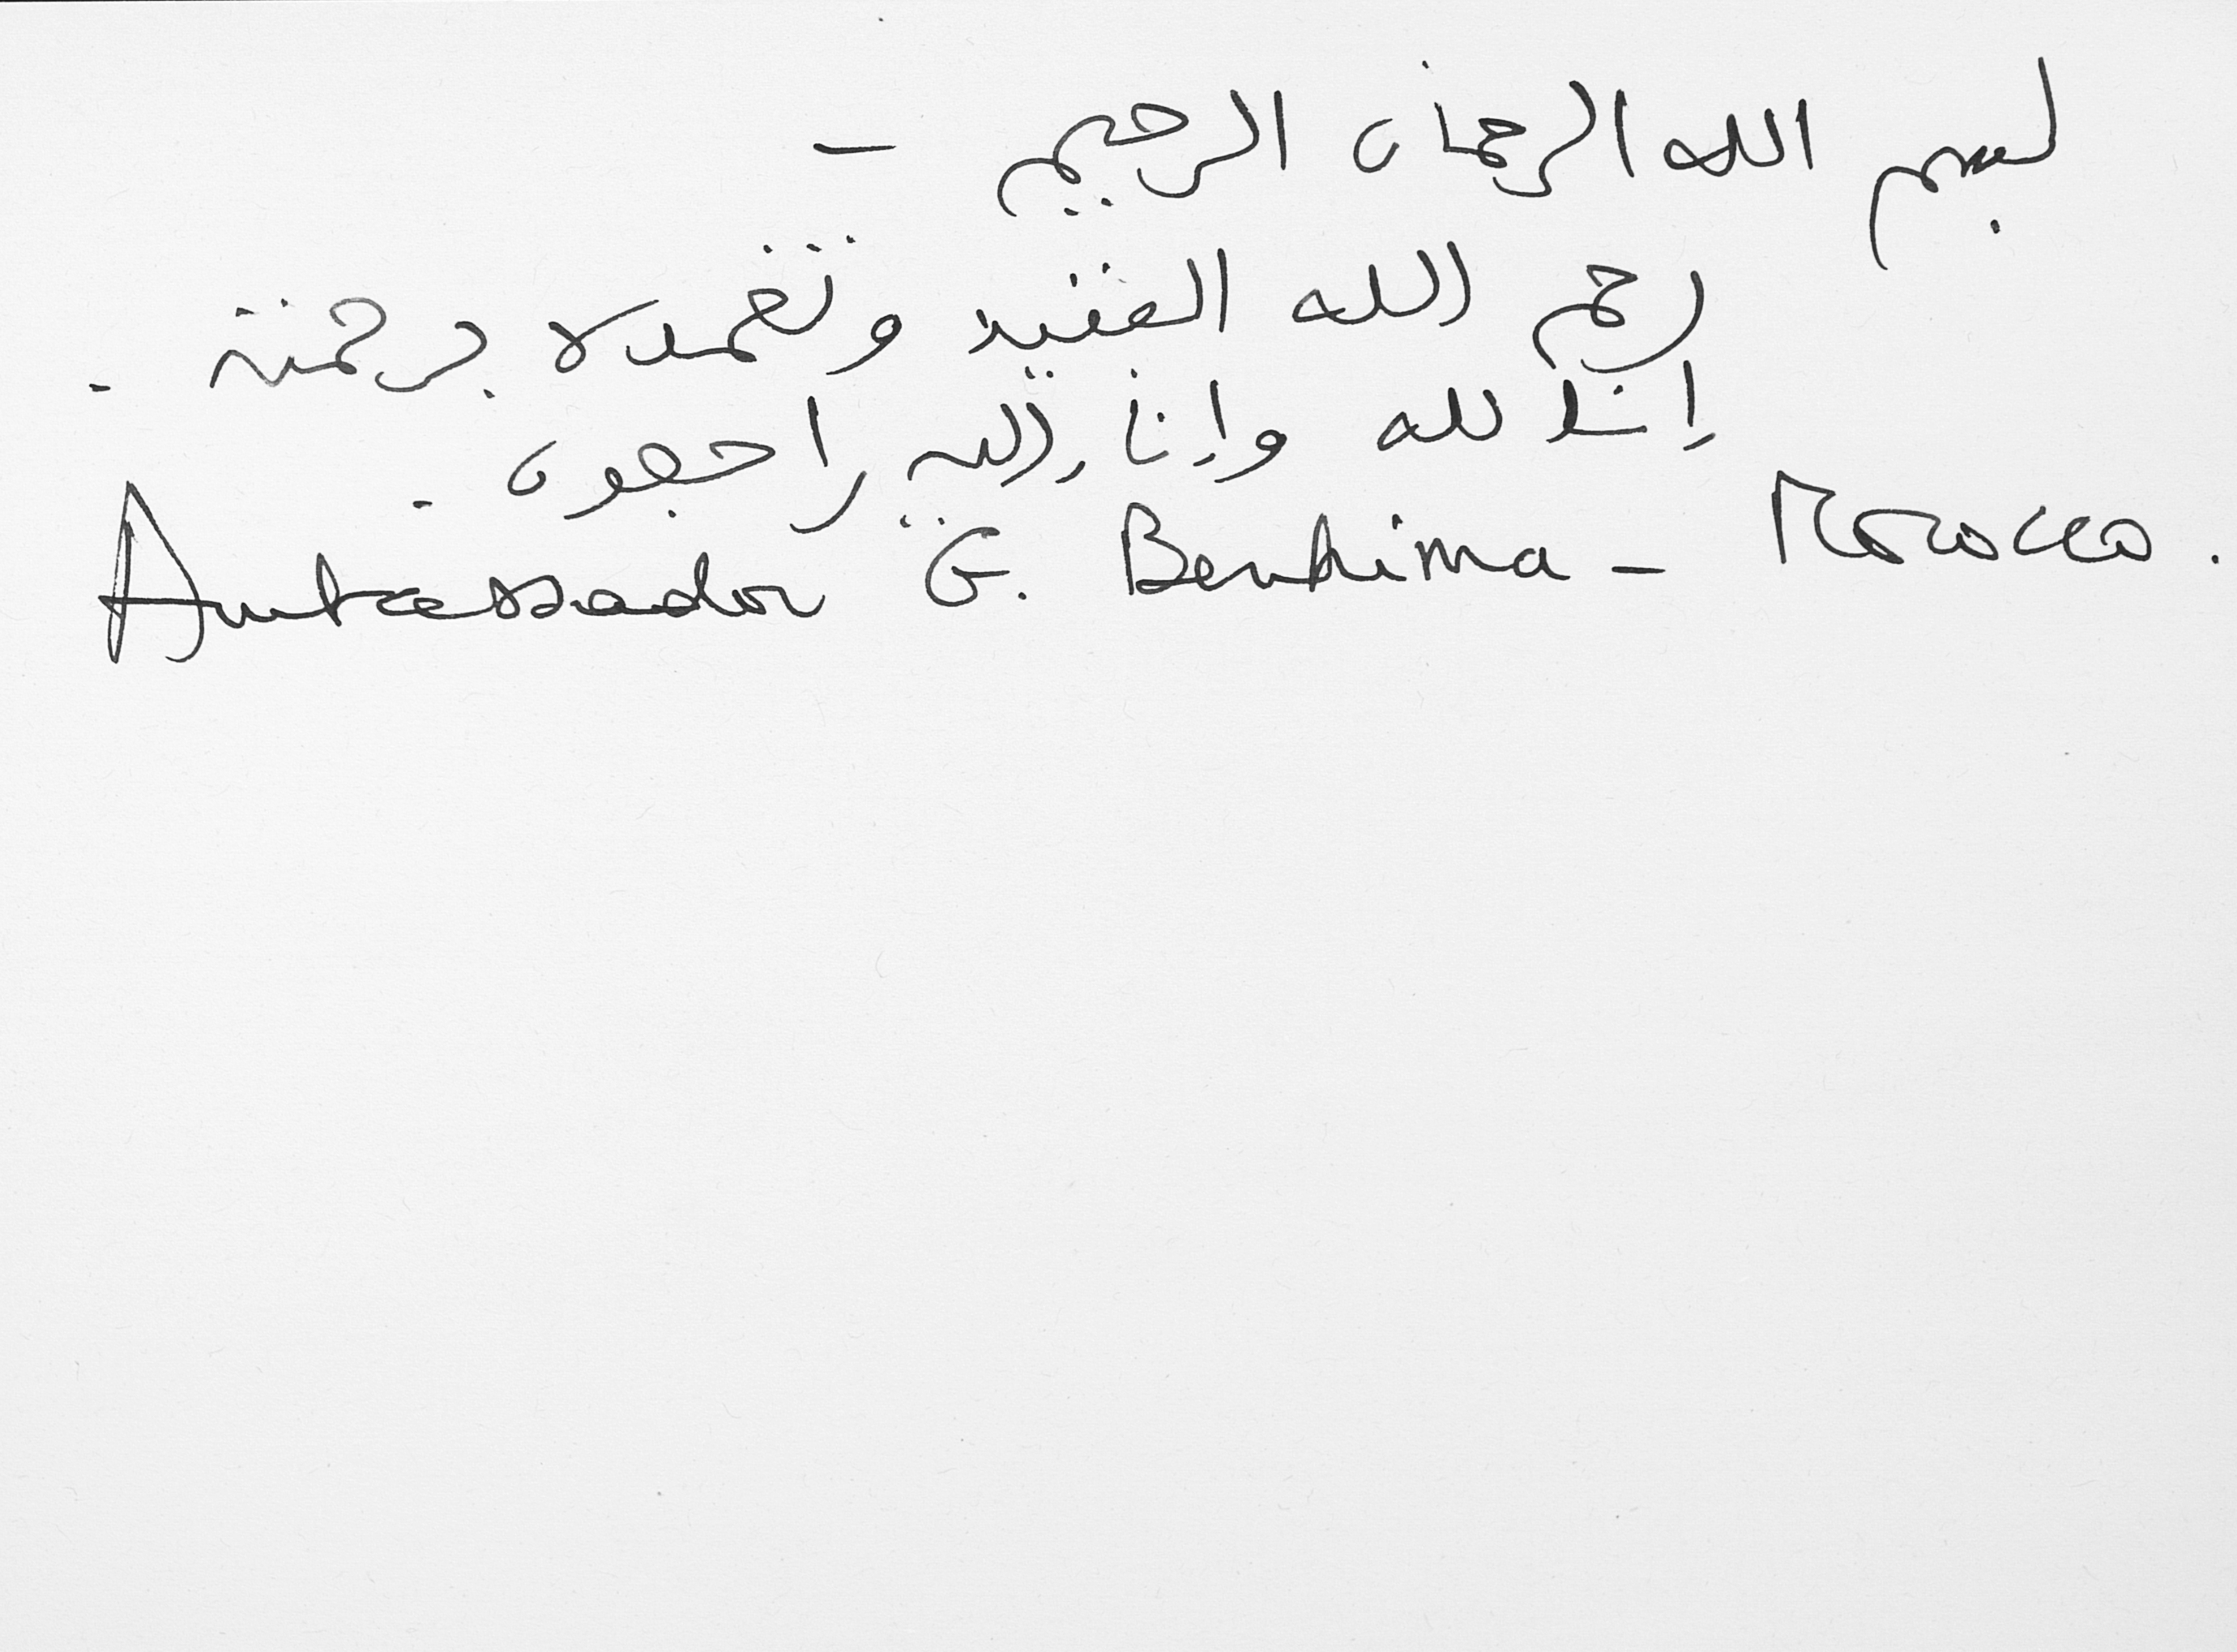 بسم الله الرحمان الرحيم -
رحم الله الفقيد وتغمده برحمته .
إنا لله وإنا إليه راجعون .
Ambassador G. Benhima - Morocco.